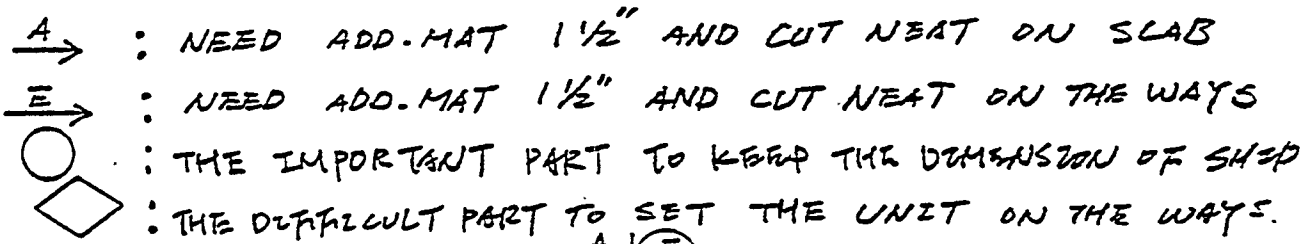 A : NEED ADD. MAT 1 1/2" AND CUT NEAT ON SLAB
E : NEED ADD. MAT 1 1/2" AND CUT NEAT ON THE WAYS
: THE IMPORTANT PART TO KEEP THE DIMENSION OF SHIP
: THE DIFFICULT PART TO SET THE UNIT ON THE WAYS.